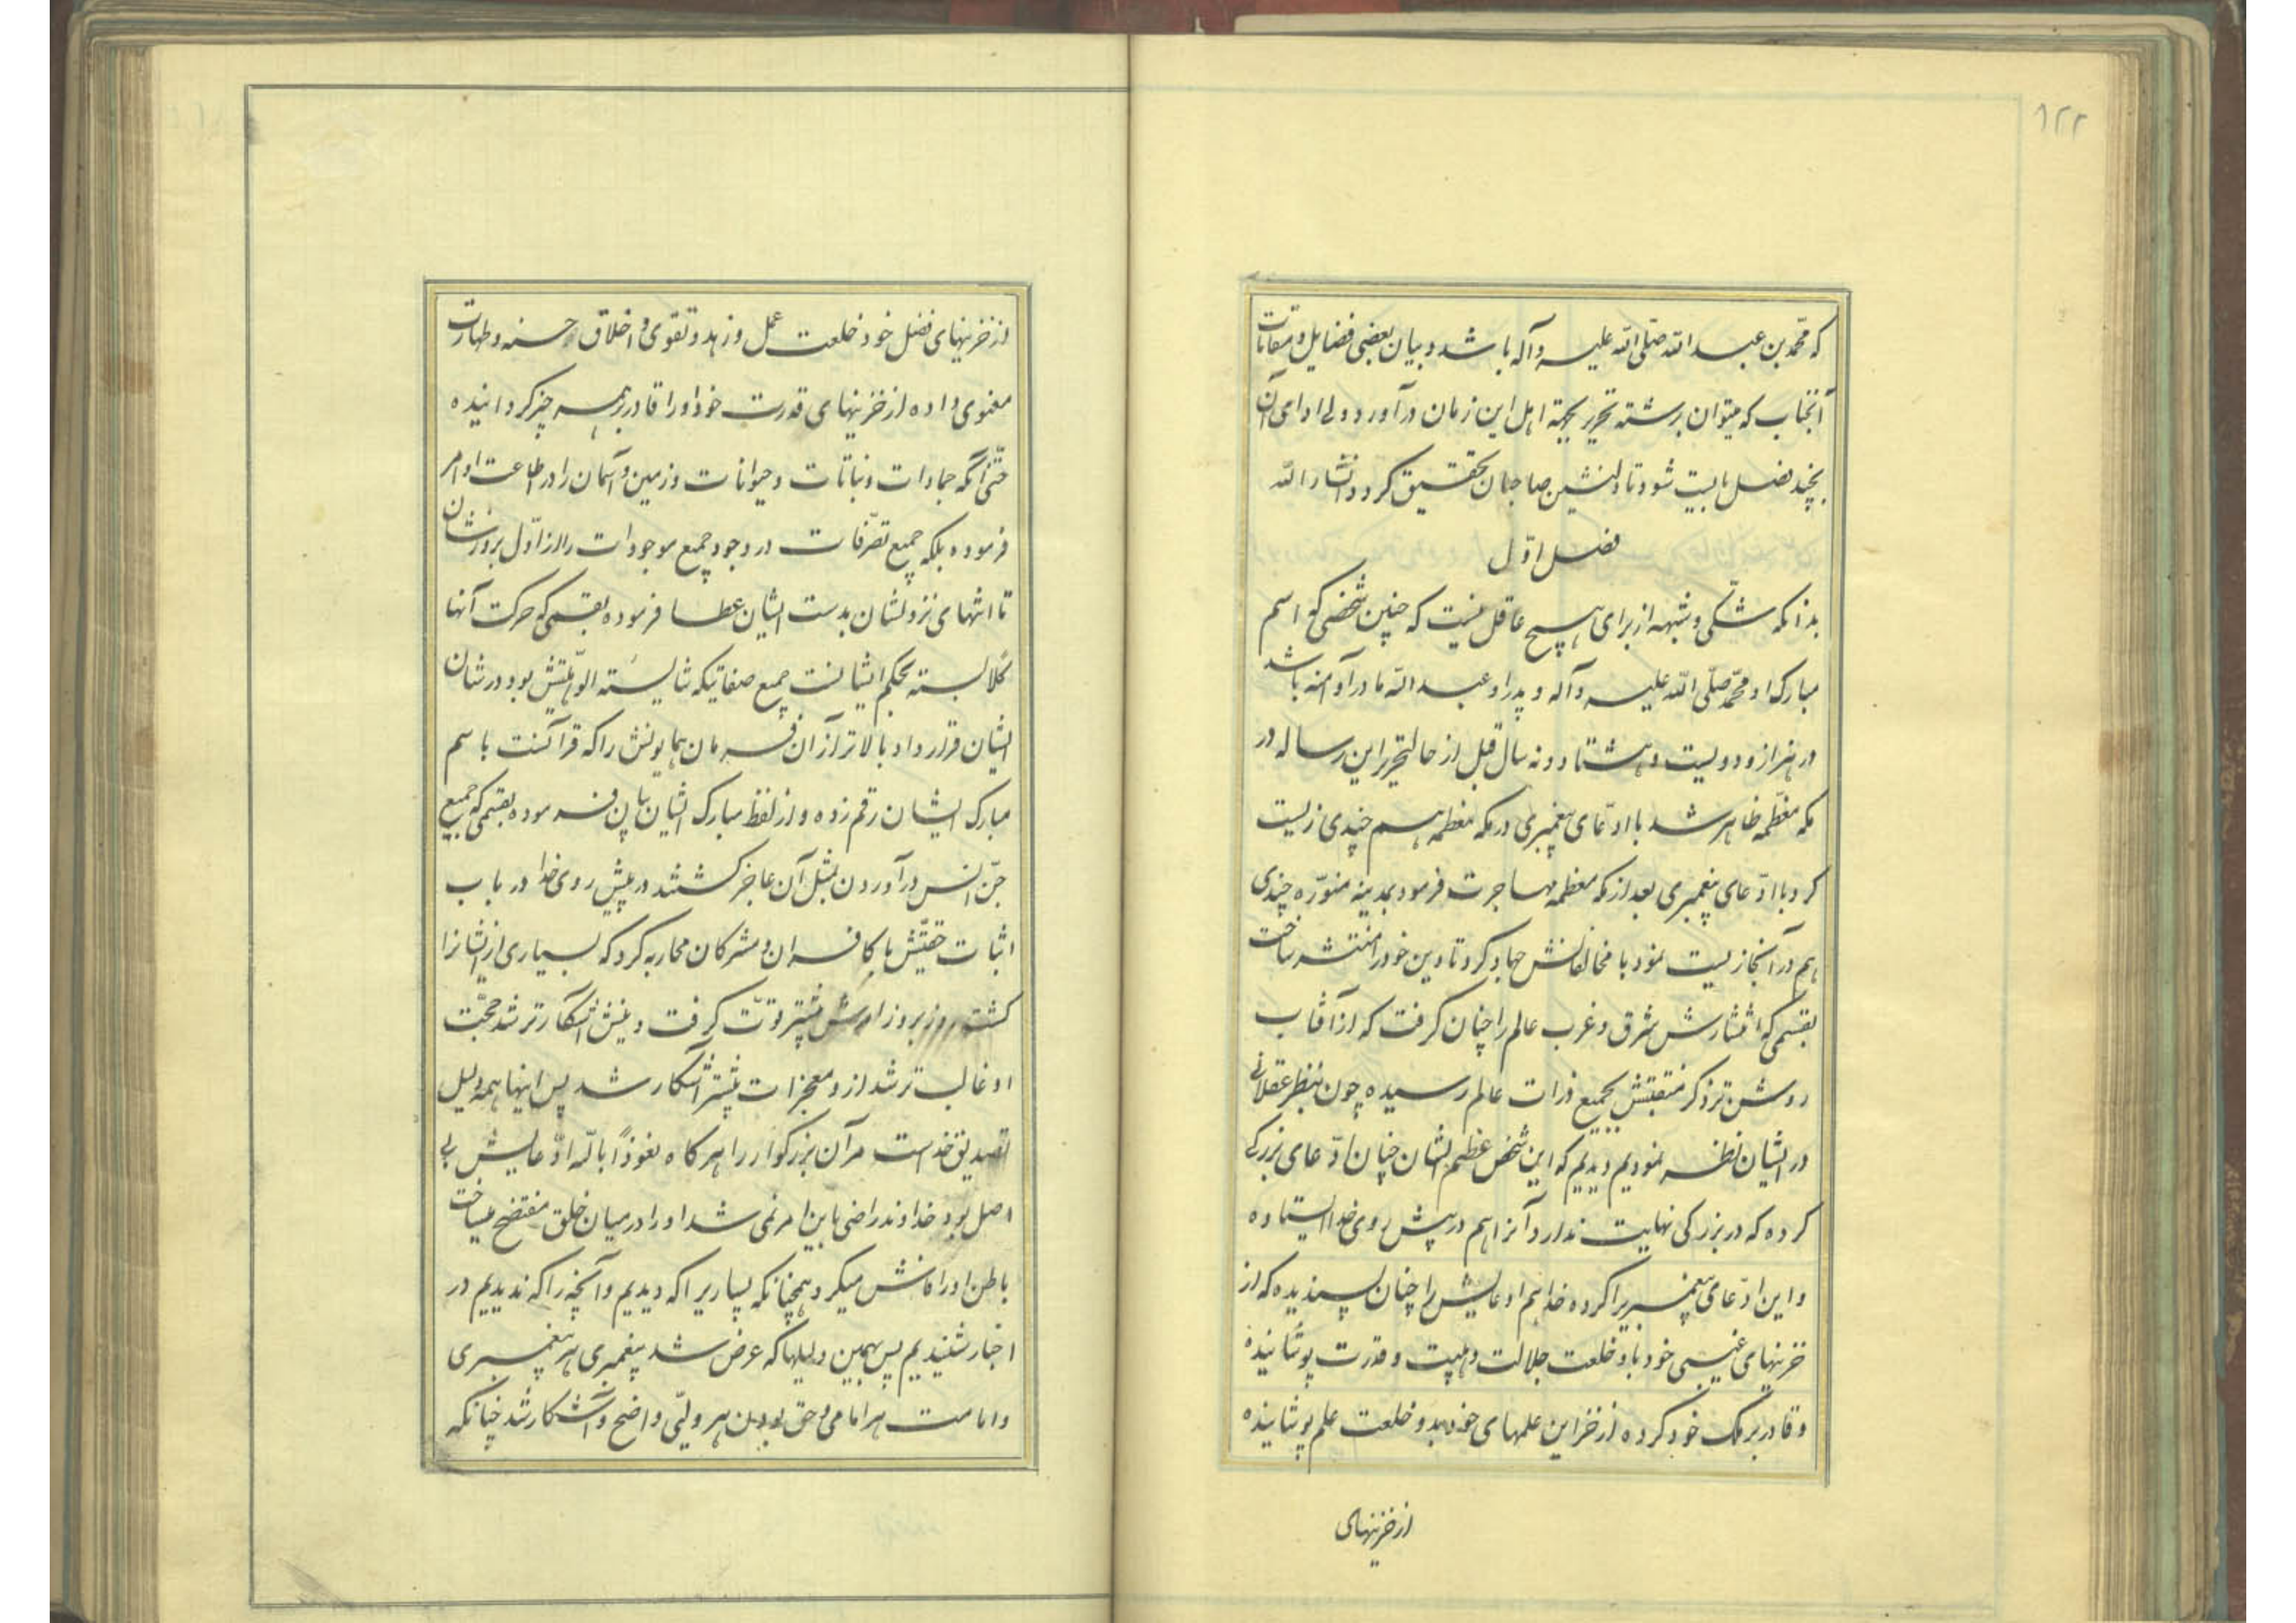 ۱۲۲
که محمّد بن عبد الله صلّی الله علیه و آله باشد و بیان بعضی فضایل و مقامات
آنجناب که میتوان برشته تحریر بجهة اهل این زمان درآورد ولی ادای آن
بچند فصل بایست شود تا دلنشین صاحبان تحقیق گردد انشاء الله
فصل اوّل
بدانکه شکّی و شبهه از برای هیچ عاقل نیست که چنین شخصی که اسم
مبارک او محمّد صلّی الله علیه و آله و پدر او عبد الله مادر او آمنه باشد
در هزار و دویست و هشتاد و نه سال قبل از حال تحریر این رساله در
مکه معظّمه ظاهر شد با ادّعای پیغمبری در مکه معظمه هم چندی زیست
کرد با ادّعای پیغمبری بعد از مکه معظمه مهاجرت فرمود بمدینه منوّره چندی
هم در آنجا زیست نمود با مخالفانش جهاد کرد تا دین خود را منتشر ساخت
بقسمی که انتشارش شرق و غرب عالم را چنان گرفت که از آفتاب
روشن تر ذکر منقبتش بجمیع ذرات عالم رسیده چون بنظر عقلانی
در ایشان نظر نمودیم دیدیم که این شخص عظیم الشان چنان ادّعای بزرگی
کرده که در بزرگی نهایت ندارد آنرا هم در پیش روی خدا ایستاده
و این ادّعای پیغمبریرا کرده خدا هم ادعایش را چنان پسندیده که از
خزینهای غیبی خود باو خلعت جلالت و هیبت و قدرت پوشانیده
و قادر بر ملک خود کرده از خزاین علمهای خود بدو خلعت علم پوشانیده
از خزینهای
از خزینهای فضل خود خلعت عمل و زهد و تقوی و اخلاق حسنه و طهارت
معنوی داده از خزینهای قدرت خود او را قادر بر همه چیز گردانیده
حتّی آنکه جمادات و نباتات و حیوانات و زمین و آسمان را در اطاعت او امر
فرموده بلکه جمیع تصرّفات در وجود جمیع موجودات را از اوّل بروزشان
تا انتهای نزولشان بدست ایشان عطا فرموده بقسمی که حرکت آنها
کلا بسته بحکم ایشانست جمیع صفاتیکه شایسته الوّهیتش بود در شان
ایشان قرار داد بالاتر از آن فرمان همایونش را که قرآنست باسم
مبارک ایشان رقم زده و از لفظ مبارک ایشان بیان فرموده بقسمی که جمیع
جنّ و انس در آوردن بمثل آن عاجز گشتند در پیش روی خدا در باب
اثبات حقیّتش با کافران و مشرکان محاربه کرد که بسیاری از ایشانرا
کشت روز بروز امرش بیشتر قوّت گرفت و دینش آشکارتر شد حجّت
او غالب تر شد از او معجزات بیشتر آشکار شد پس اینها همه دلیل
تصدیق خداست مر آن بزرگوار را هرگاه نعوذاً بالله ادّعایش بی
اصل بود خداوند راضی باین امر نمی شد او را در میان خلق مفتضح میساخت
باطن او را فاش میکرد همچنانکه بسیاریرا که دیدیم و آنچه را که ندیدیم در
اخبار شنیدیم پس بهمین دلیلها که عرض شد پیغمبری هر پیغمبری
و امامت هر امامی و حق بودن هر ولیّی واضح و آشکار شد چنانکه